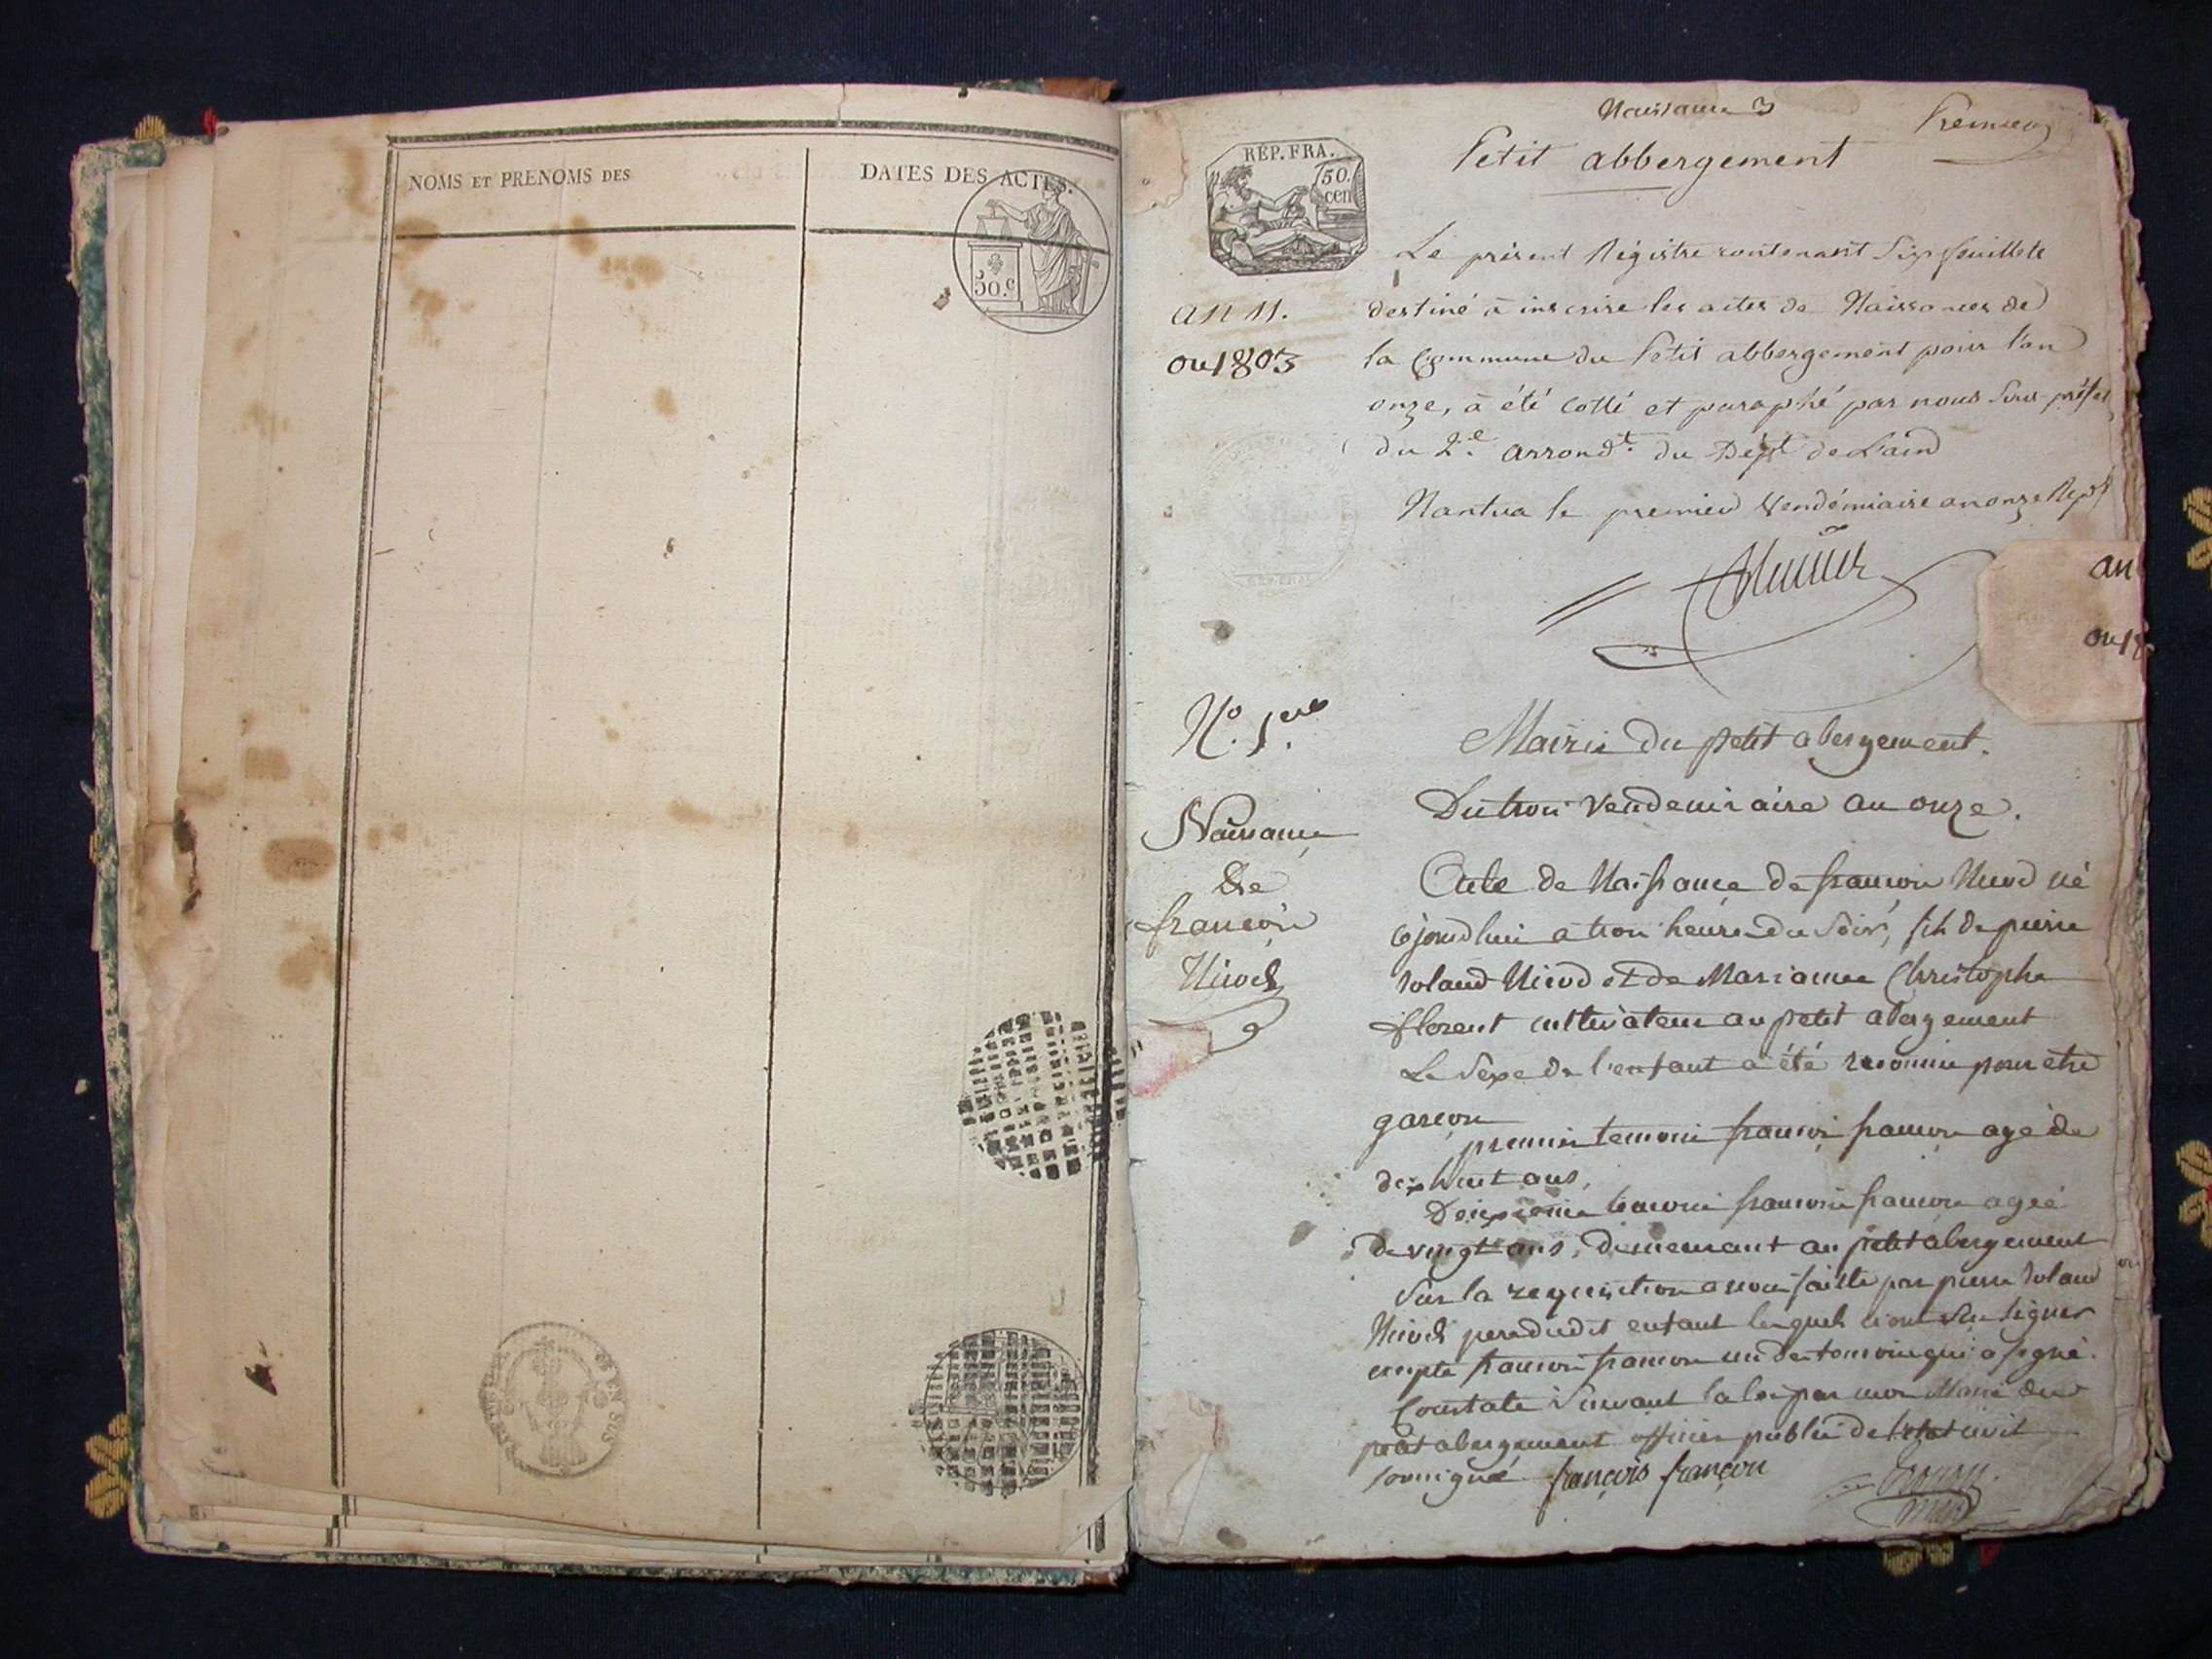 NOMS ET PRENOMS DES
DATES DES ACTES.
50.c
Naissance 3
Premier
Petit abbergement
RÉP. FRA.
750.
cen
Le présent Régistre contenant Six feuillets
an 11.
destiné à inscrire les actes de Naissances de
ou 1803
la Commune du Petit abbergement pour l'an
onze, à été cotté et paraphé par nous Sous-préfet
du 2.e arrond.t du Dép.t de L'ain
Nantua le premier Vendémiaire an onze Rep
an
ou 18
N.o 1.er
Mairie du petit abergement.
Du trois Vendemiaire an onze.
Naissance
de
françois
Nicod
Acte de Naissance de françois Nicod né
cejourdhui à trois heures du Soir, fils de pierre
Roland Nicod et de Marianne Christophe
florent cultivateur au petit abergement
Le Sexe de l'enfant a été reconnu pour etre
garçon
premier temoin françois françon agé de
dix huit ans,
Deuxieme temoin françois françon agée
de vingt ans, demeurant au petit abergement
Sur la requisition a nous faitte par pierre Roland
Nicod pere dudit enfant lesquels n'ont Su signer
excepté françois françon un des temoins qui a signé.
Constaté Suivant la loi par moi Maire du
petit abergement officier public de l'etat civil
soussigné françois françon